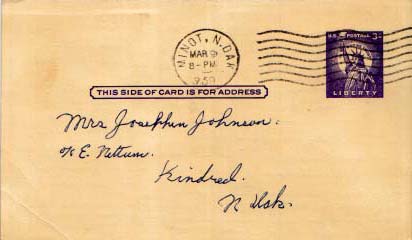 MINOT, N.DAK
MAR 9
8-PM
1959
U.S. POSTAGE 3¢
LIBERTY
THIS SIDE OF CARD IS FOR ADDRESS
Mrs Josephin Johnson.
c/o E. Nettum.
Kindred.
N Dak.